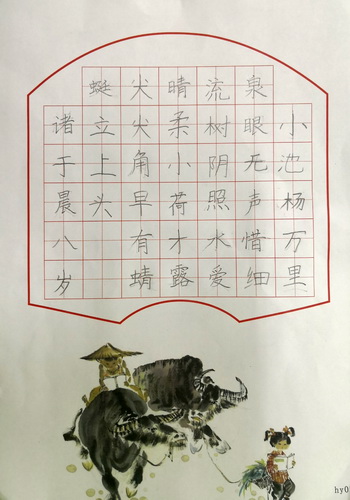 小池杨万里
泉眼无声惜细
流树阴照水爱
晴柔小荷才露
尖尖角早有蜻
蜓立上头
诸于晨八岁
hy0